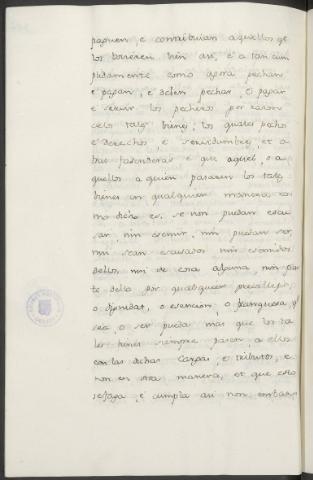 paguen, e contribuian aquellos qe
los hvieren bien asi, e a tan cum
plidamente como agora pechan
e pagan, e deben pechar, e pagar
e servir los pecheros por razon
de los tales bienes, los quales pechos
e derechos e servidumbres, et o
tras fasenderas e que aquel, o a
quellos a quien pasaren los tales
bienes en qualquier manera co
mo dicho es, se non puedan escu
sar, nin eximir, nin puedan ser,
nin sean escusados nin esemidos
dellos, nin de cosa alguna, nin par
te dello por qualquier previllejo,
o dignidat, o esencion, o franquesa q.e
sea, o ser pueda mas que los ta
les bienes siempre pasen a ellos
con las dichas Cargas, e tributos, e
non en otra manera, et que esto
se faga, e cumpla asi non embar